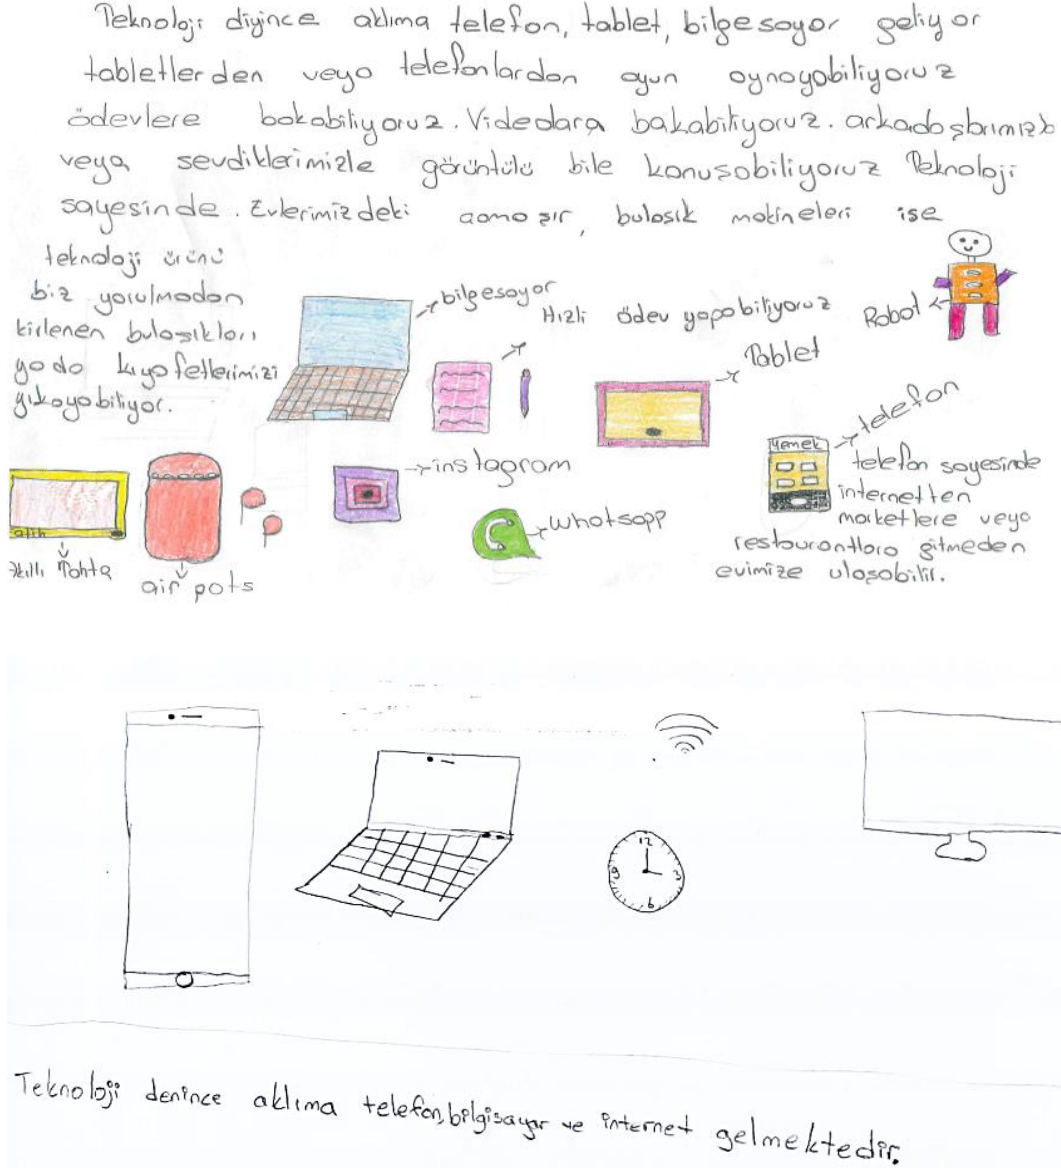 Teknoloji diyince aklıma telefon, tablet, bilgesayor geliyor
tabletlerden veya telefonlardan oyun oynayabiliyoruz
ödevlere bakabiliyoruz. Videolara bakabiliyoruz. arkadaşlarımızla
veya sevdiklerimizle görüntülü bile konuşabiliyoruz Teknoloji
sayesinde. Evlerimizdeki çamaşır, bulaşık makineleri ise
teknoloji ürünü
biz yorulmadan
kirlenen bulaşıkları
yada kıyafetlerimizi
yıkayabiliyor.
bilgesayor
Hızlı ödev yapabiliyoruz
Robot
Tablet
telefon
Yemek
telefon sayesinde
internetten
marketlere veya
restaurantlara gitmeden
evimize ulaşabilir.
instagram
whatsapp
Akıllı Tahta
air pots
12
3
6
9
Teknoloji denince aklıma telefon, bilgisayar ve internet gelmektedir.